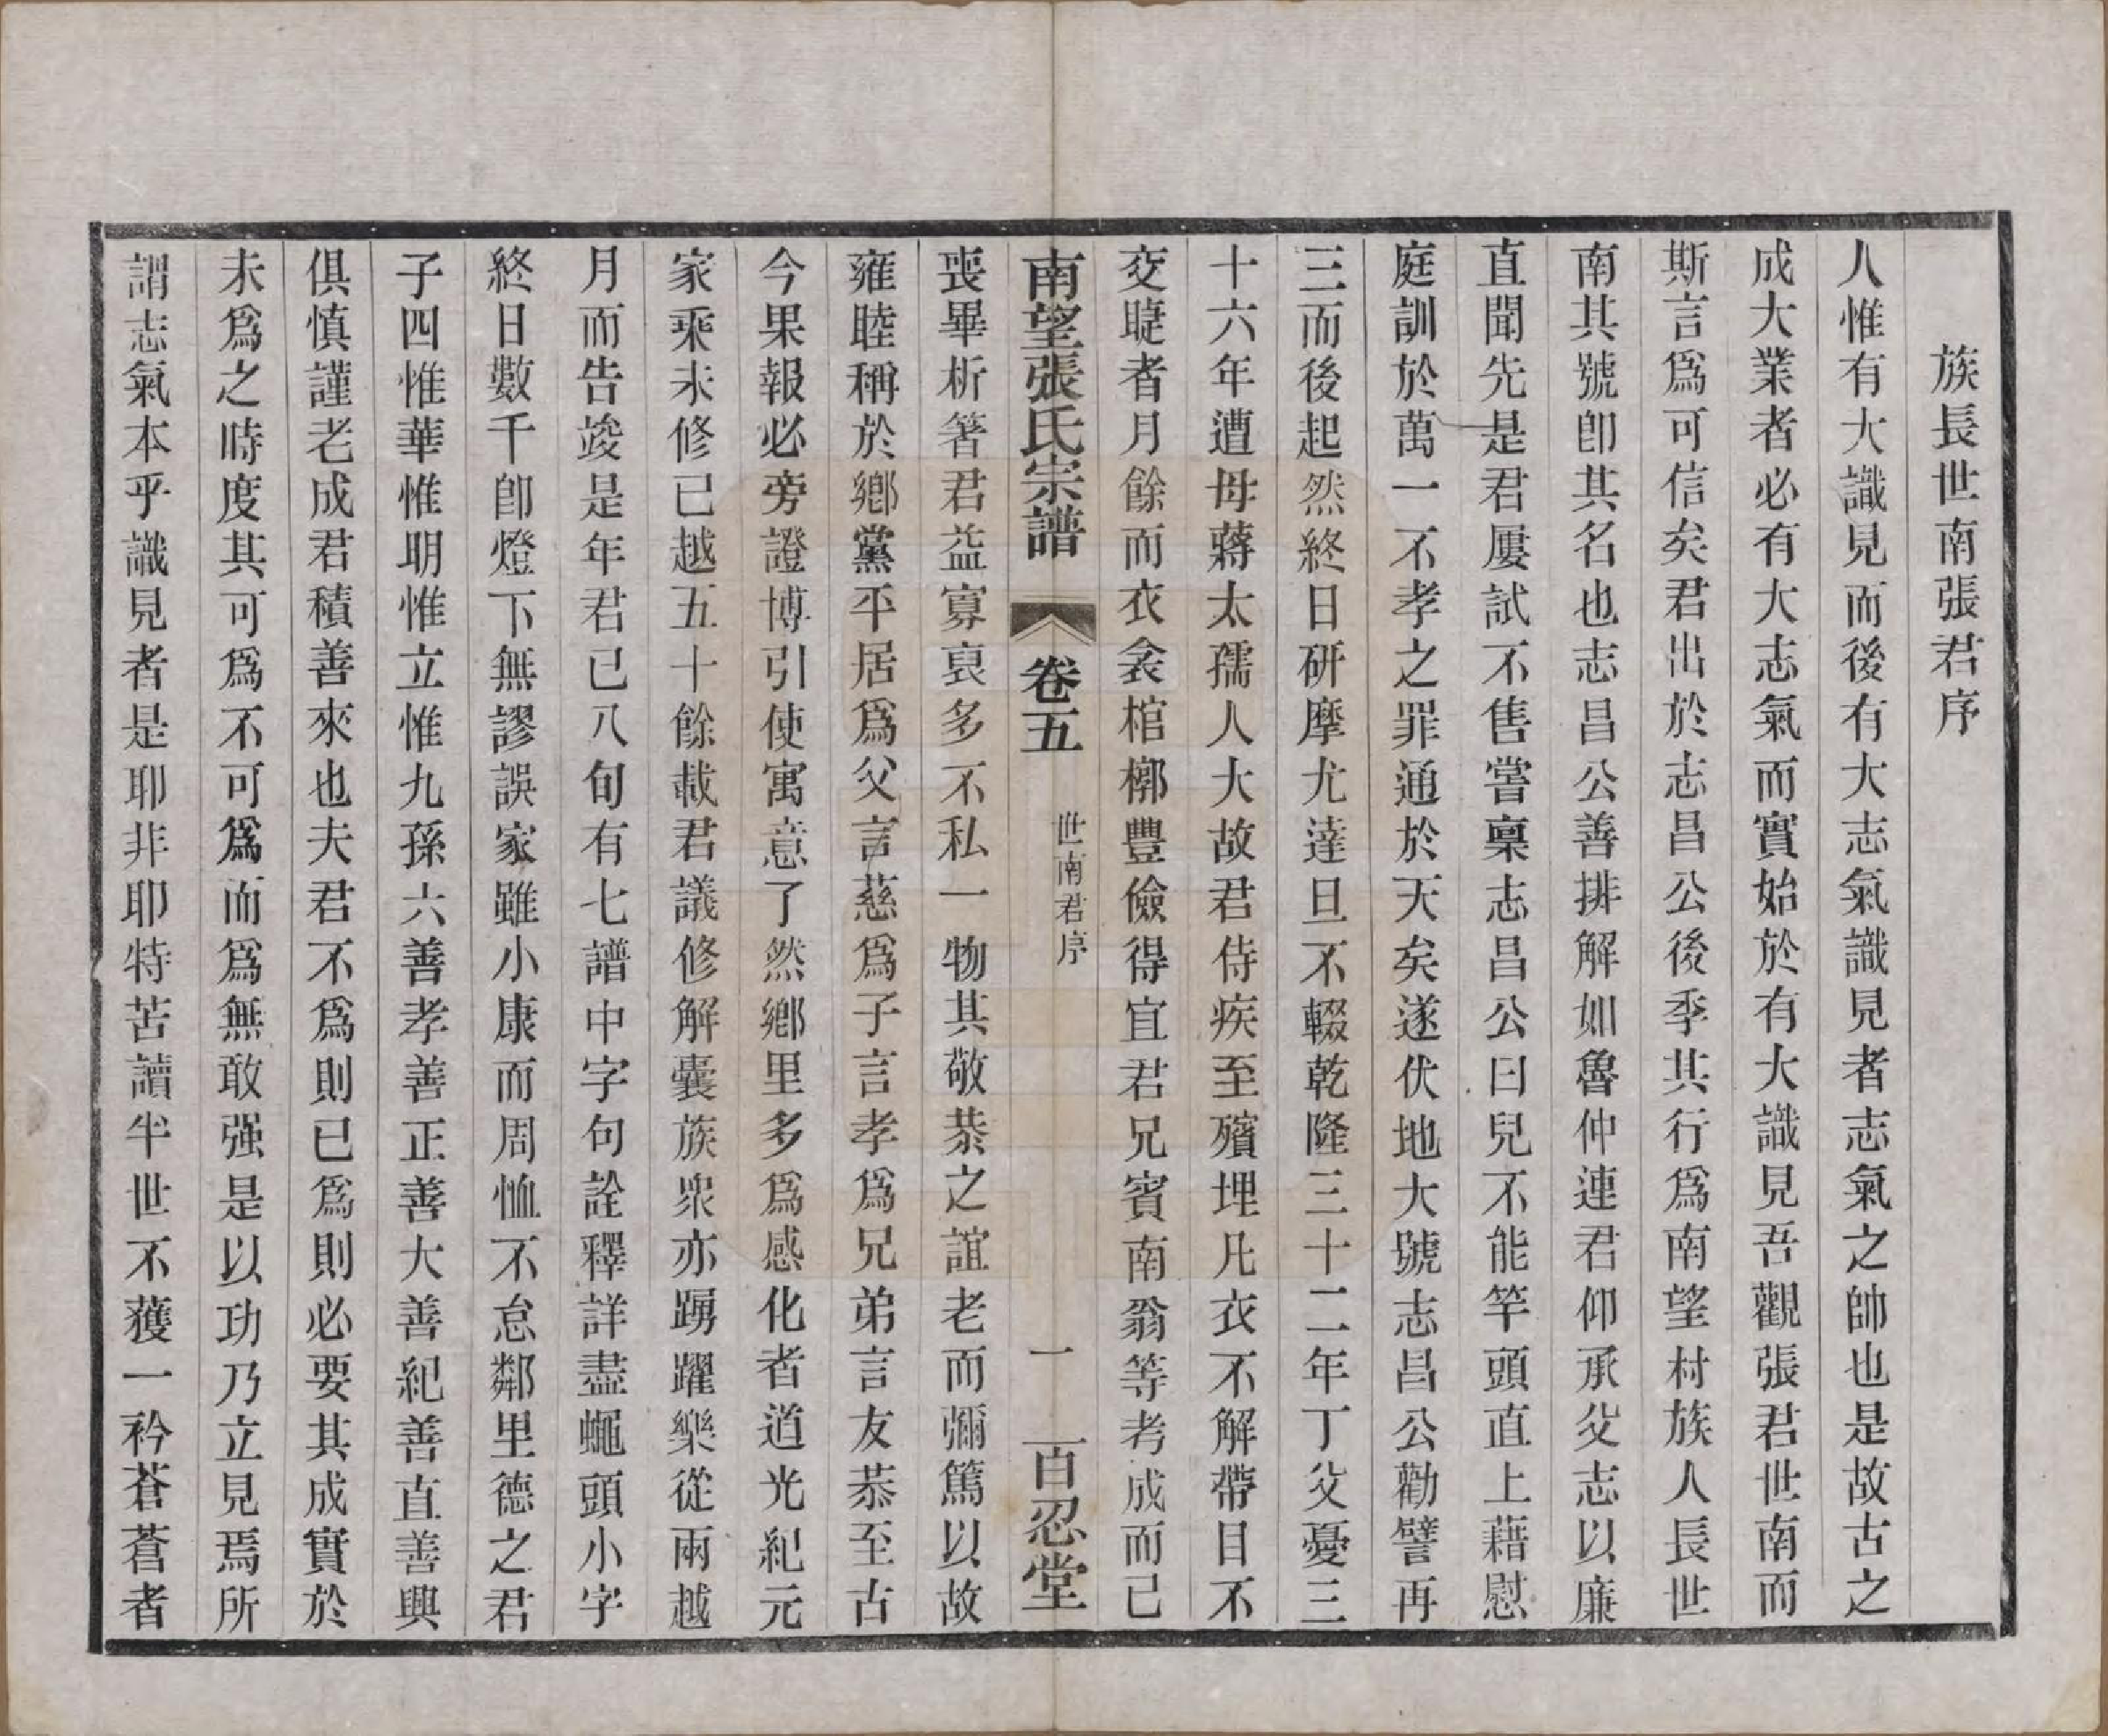 族長世南張君序
人惟有大識見而後有大志氣識見者志氣之帥也是故古之
成大業者必有大志氣而實始於有大識見吾觀張君世南而
斯言爲可信矣君出於志昌公後季其行爲南望村族人長世
南其號卽其名也志昌公善排解如魯仲連君仰承父志以廉
直聞先是君屢試不售嘗稟志昌公曰兒不能竿頭直上藉慰
庭訓於萬一不孝之罪通於天矣遂伏地大號志昌公勸譬再
三而後起然終日研摩尤達旦不輟乾隆三十二年丁父憂三
十六年遭母蔣太孺人大故君侍疾至殯埋凡衣不解帶目不
交睫者月餘而衣衾棺槨豐儉得宜君兄賓南翁等考成而已
南望張氏宗譜
卷五
世南君序
一
百忍堂
喪畢析箸君益寡裒多不私一物其敬恭之誼老而彌篤以故
雍睦稱於鄉黨平居爲父言慈爲子言孝爲兄弟言友恭至古
今果報必旁證博引使寓意了然鄉里多爲感化者道光紀元
家乘未修已越五十餘載君議修解囊族衆亦踴躍樂從兩越
月而告竣是年君已八旬有七譜中字句詮釋詳盡蠅頭小字
終日數千卽燈下無謬誤家雖小康而周恤不怠鄰里德之君
子四惟華惟明惟立惟九孫六善孝善正善大善紀善直善興
俱慎謹老成君積善來也夫君不爲則已爲則必要其成實於
未爲之時度其可爲不可爲而爲無敢强是以功乃立見焉所
謂志氣本乎識見者是耶非耶特苦讀半世不獲一衿蒼蒼者